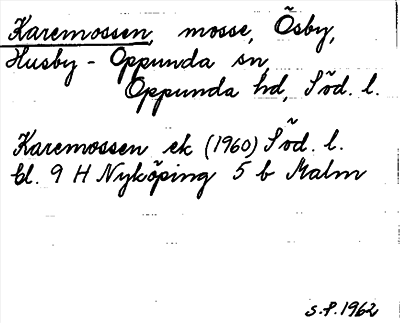 Karemossen, mosse, Ösby,
Husby - Oppunda sn,
Oppunda hd, Söd. l.
Karemossen ek (1960) Söd. l.
bl. 9 H Nyköping 5 b Malm
S.P. 1962